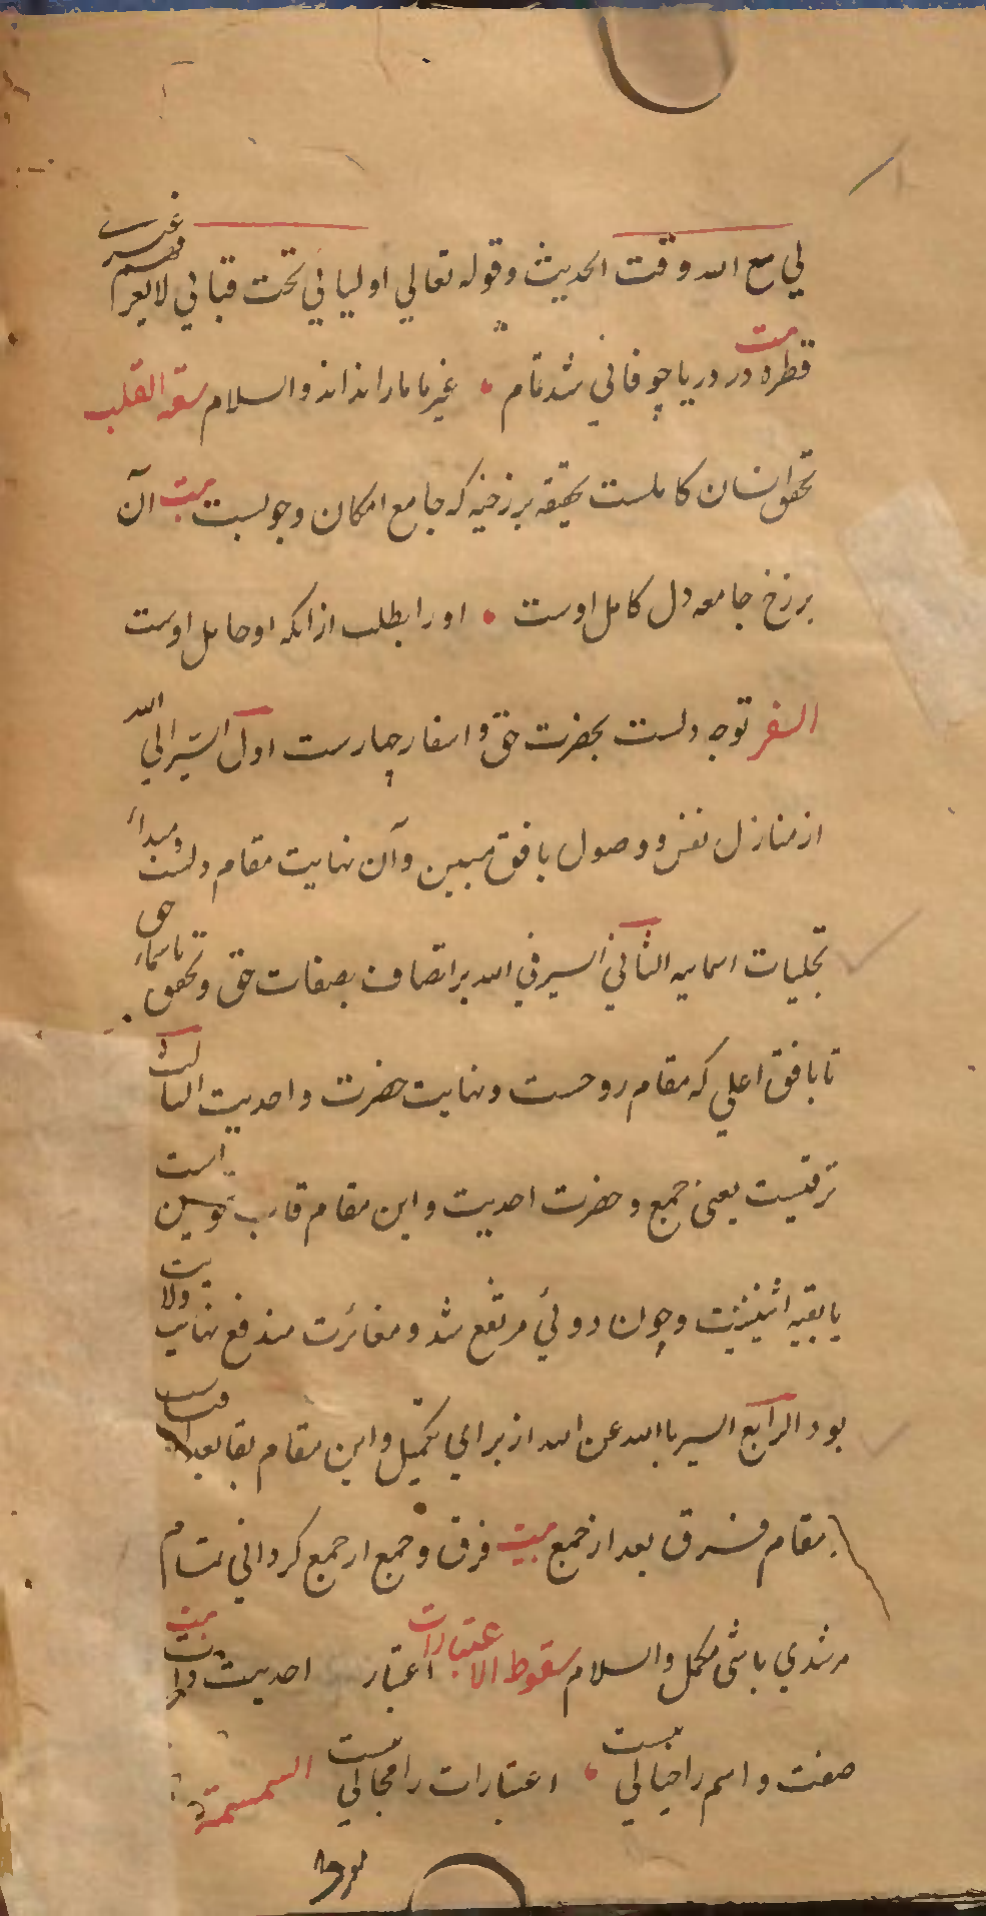 لي مع الله وقت الحديث وقوله تعالي اوليائي تحت قبابي لا يعرفهم غيري
بيت قطره در دريا چو فاني شد تمام • غير ما ما را نداند والسلام سعة القلب
تحقق انسان كاملست بحقيقة برزخيه كه جامع امكان و وجوبست بيت آن
برزخ جامعه دل كامل اوست • او را بطلب ازانكه او حامل اوست
السفر توجه دلست بحضرت حق و اسفار چهارست اول السير الي الله
از منازل نفس و وصول بافق مبين و آن نهايت مقام دلست و مبدأ
تجليات اسمائيه الثاني السير في الله بر اتصاف بصفات حق و تحقق باسماء حق
تا بافق اعلي كه مقام روحست و نهايت حضرت واحديت الثالث
ترقيست بعين جمع و حضرت احديت و اين مقام قاب قوسين است
با بقيه اثنينيت و چون دوئي مرتفع شد و مغائرت مندفع نهايت ولايت
بود الرابع السير بالله عن الله از براي تكميل و اين مقام بقا بعد فناست
مقام فرق بعد از جمع بيت فرق و جمع ار جمع كرداني تمام
مرشدي باشي مكمل والسلام سقوط الاعتبارات اعتبار احديت ذات بيت
صفت و اسم را خيالي نيست • اعتبارات را مجالي نيست السمسمة